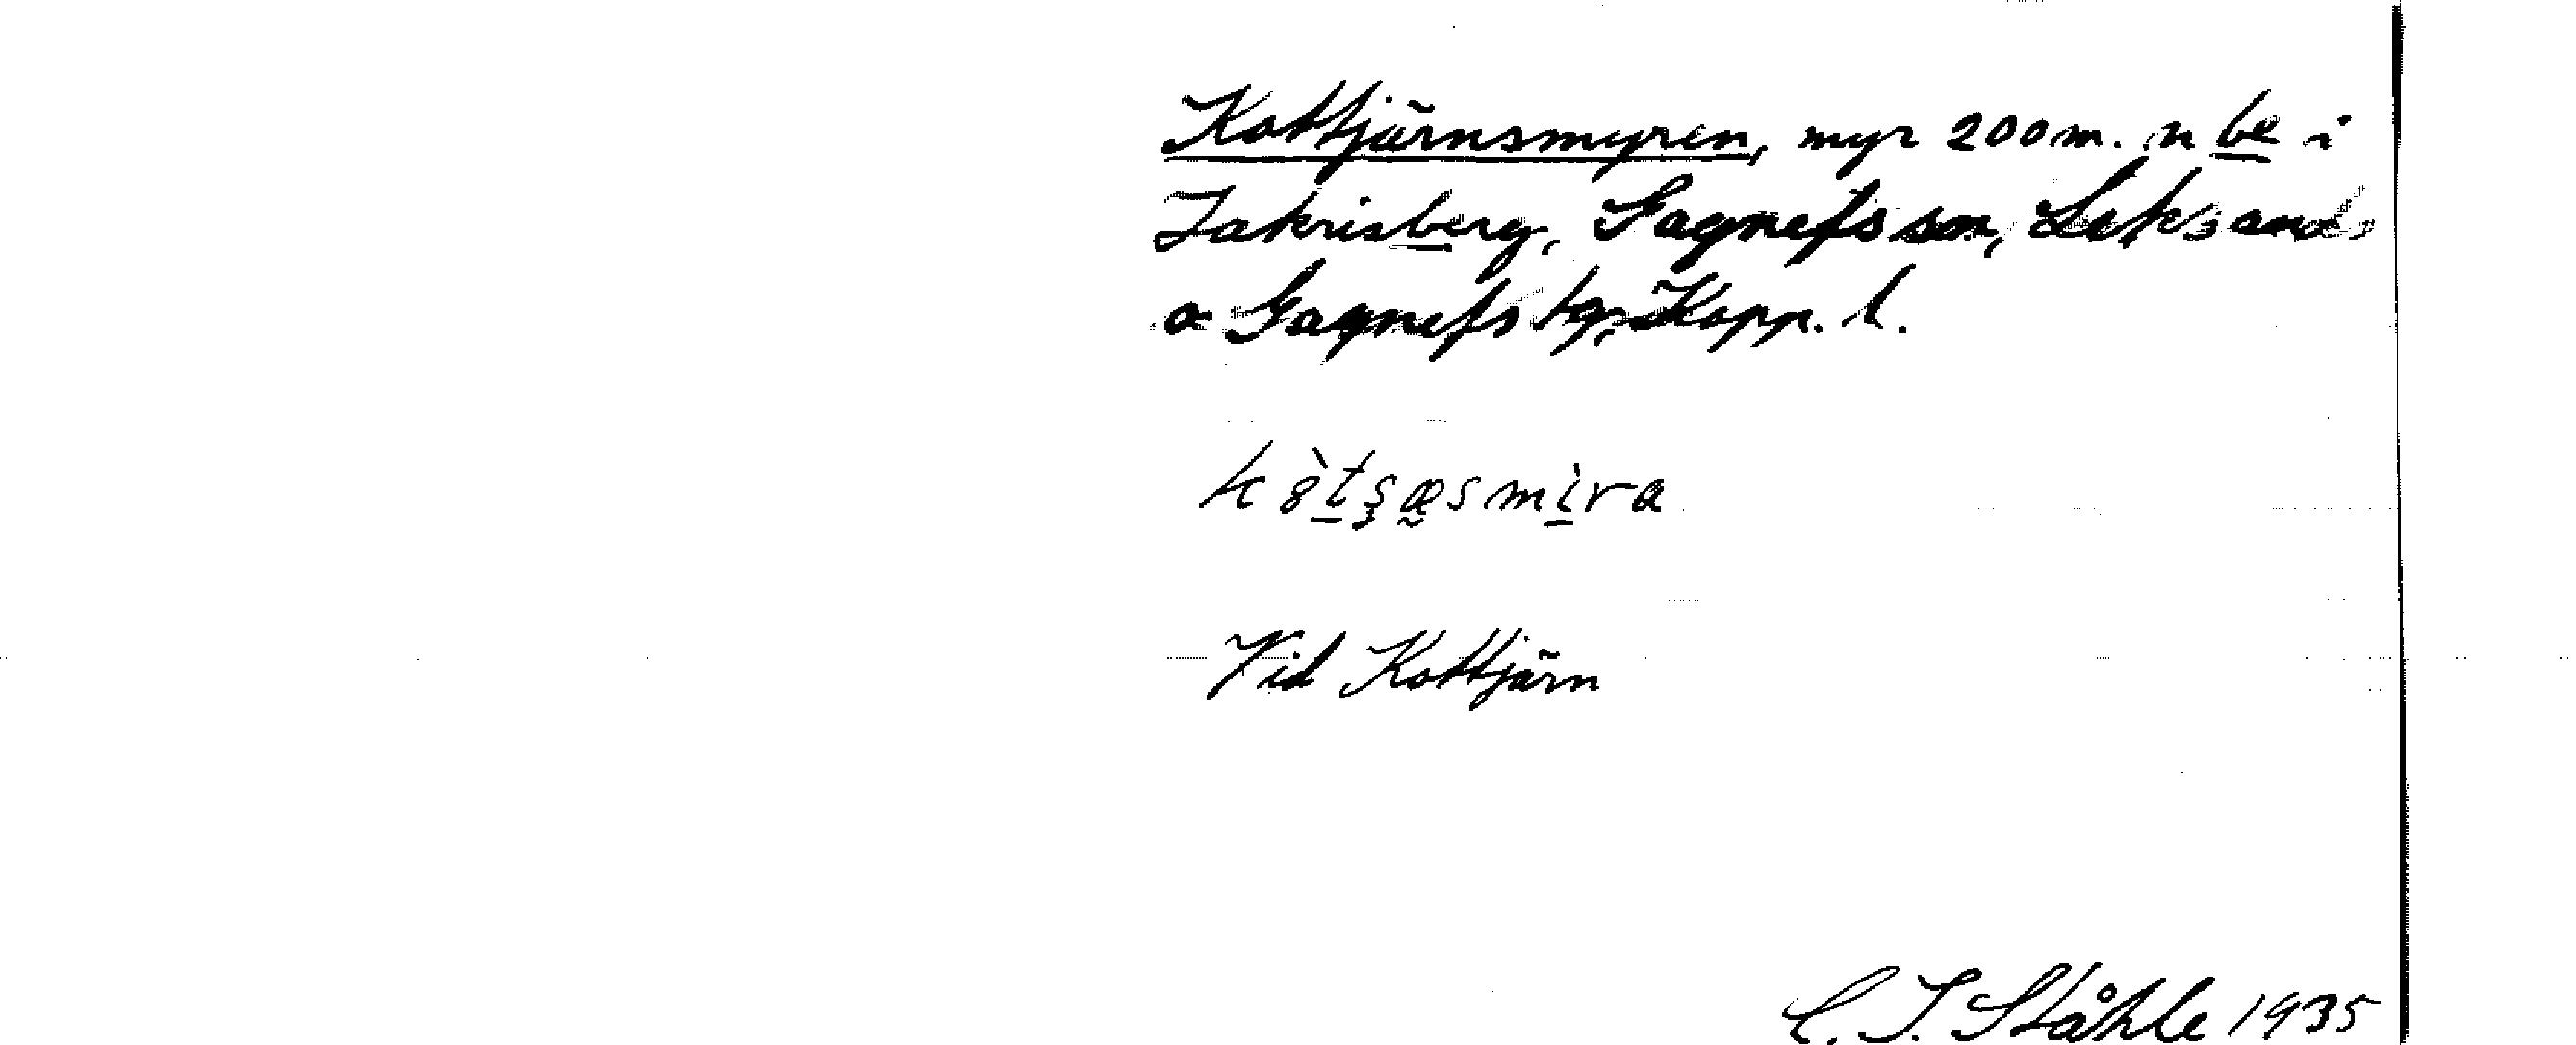 Kottjärnsmyren, myr 200 m. n be i
Jakrisberg, Gagnefs sn, Leksands
o Gagnefs tg, Kopp. l.
Vid Kottjärn
C. I. Ståhle 1935